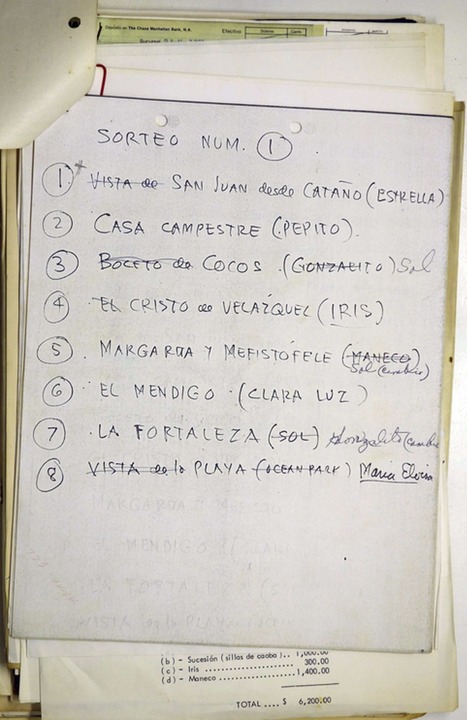 Depósito en The Chase Manhattan Bank, N.A.
Efectivo
SORTEO NUM. 1
1 VISTA de SAN JUAN desde CATAÑO (ESTRELLA)
2 CASA CAMPESTRE (PEPITO).
3 BOCETO de COCOS (GONZALITO) Sol
4 EL CRISTO de VELAZQUEZ (IRIS)
5 MARGARITA Y MEFISTÓFELE (MANECO)
Sol (cambio)
6 EL MENDIGO (CLARA LUZ)
7 LA FORTALEZA (SOL) Gonzalito (cambio
8 VISTA de la PLAYA (OCEAN PARK) Maria Eloisa
EL MENDIGO
LA FORTALEZA
VISTA de la PLAYA
(b) - Sucesión (sillas de caoba).. 1,000.00
(c) - Iris .................. 300.00
(d) - Maneco ............... 1,400.00
TOTAL .... $ 6,200.00